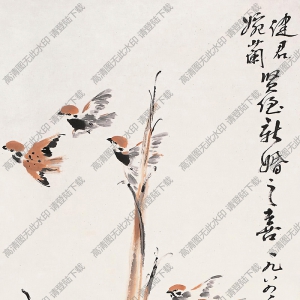 健君
婉蘭
贤侄新婚之喜一九六
高清图无此水印 请登陆下载
高清图无此水印 请登陆下载
高清图无此水印 请登陆下载
高清图无此水印 请登陆下载
高清图无此水印 请登陆下载
高清图无此水印 请登陆下载